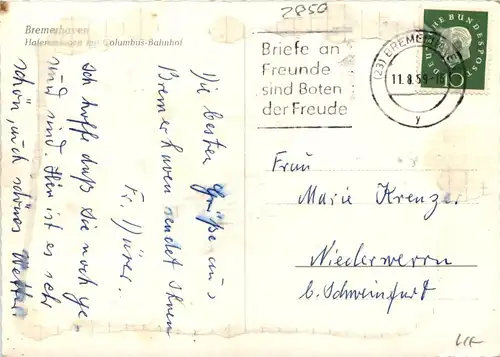 2850
Bremerhaven
Hafenanlagen mit Columbus-Bahnhof
Die besten Grüße aus
Bremerhaven sendet Ihnen
Fr. Dürer.
Ich hoffe daß Sie noch ge-
sund sind. Hier ist es sehr
schön, auch schönes Wetter
Briefe an
Freunde
sind Boten
der Freude
(23) BREMERHAVEN
11.8.59
y
DEUTSCHE BUNDESPOST
10
Frau
Marie Krenzer
Niederwerrn
b. Schweinfurt